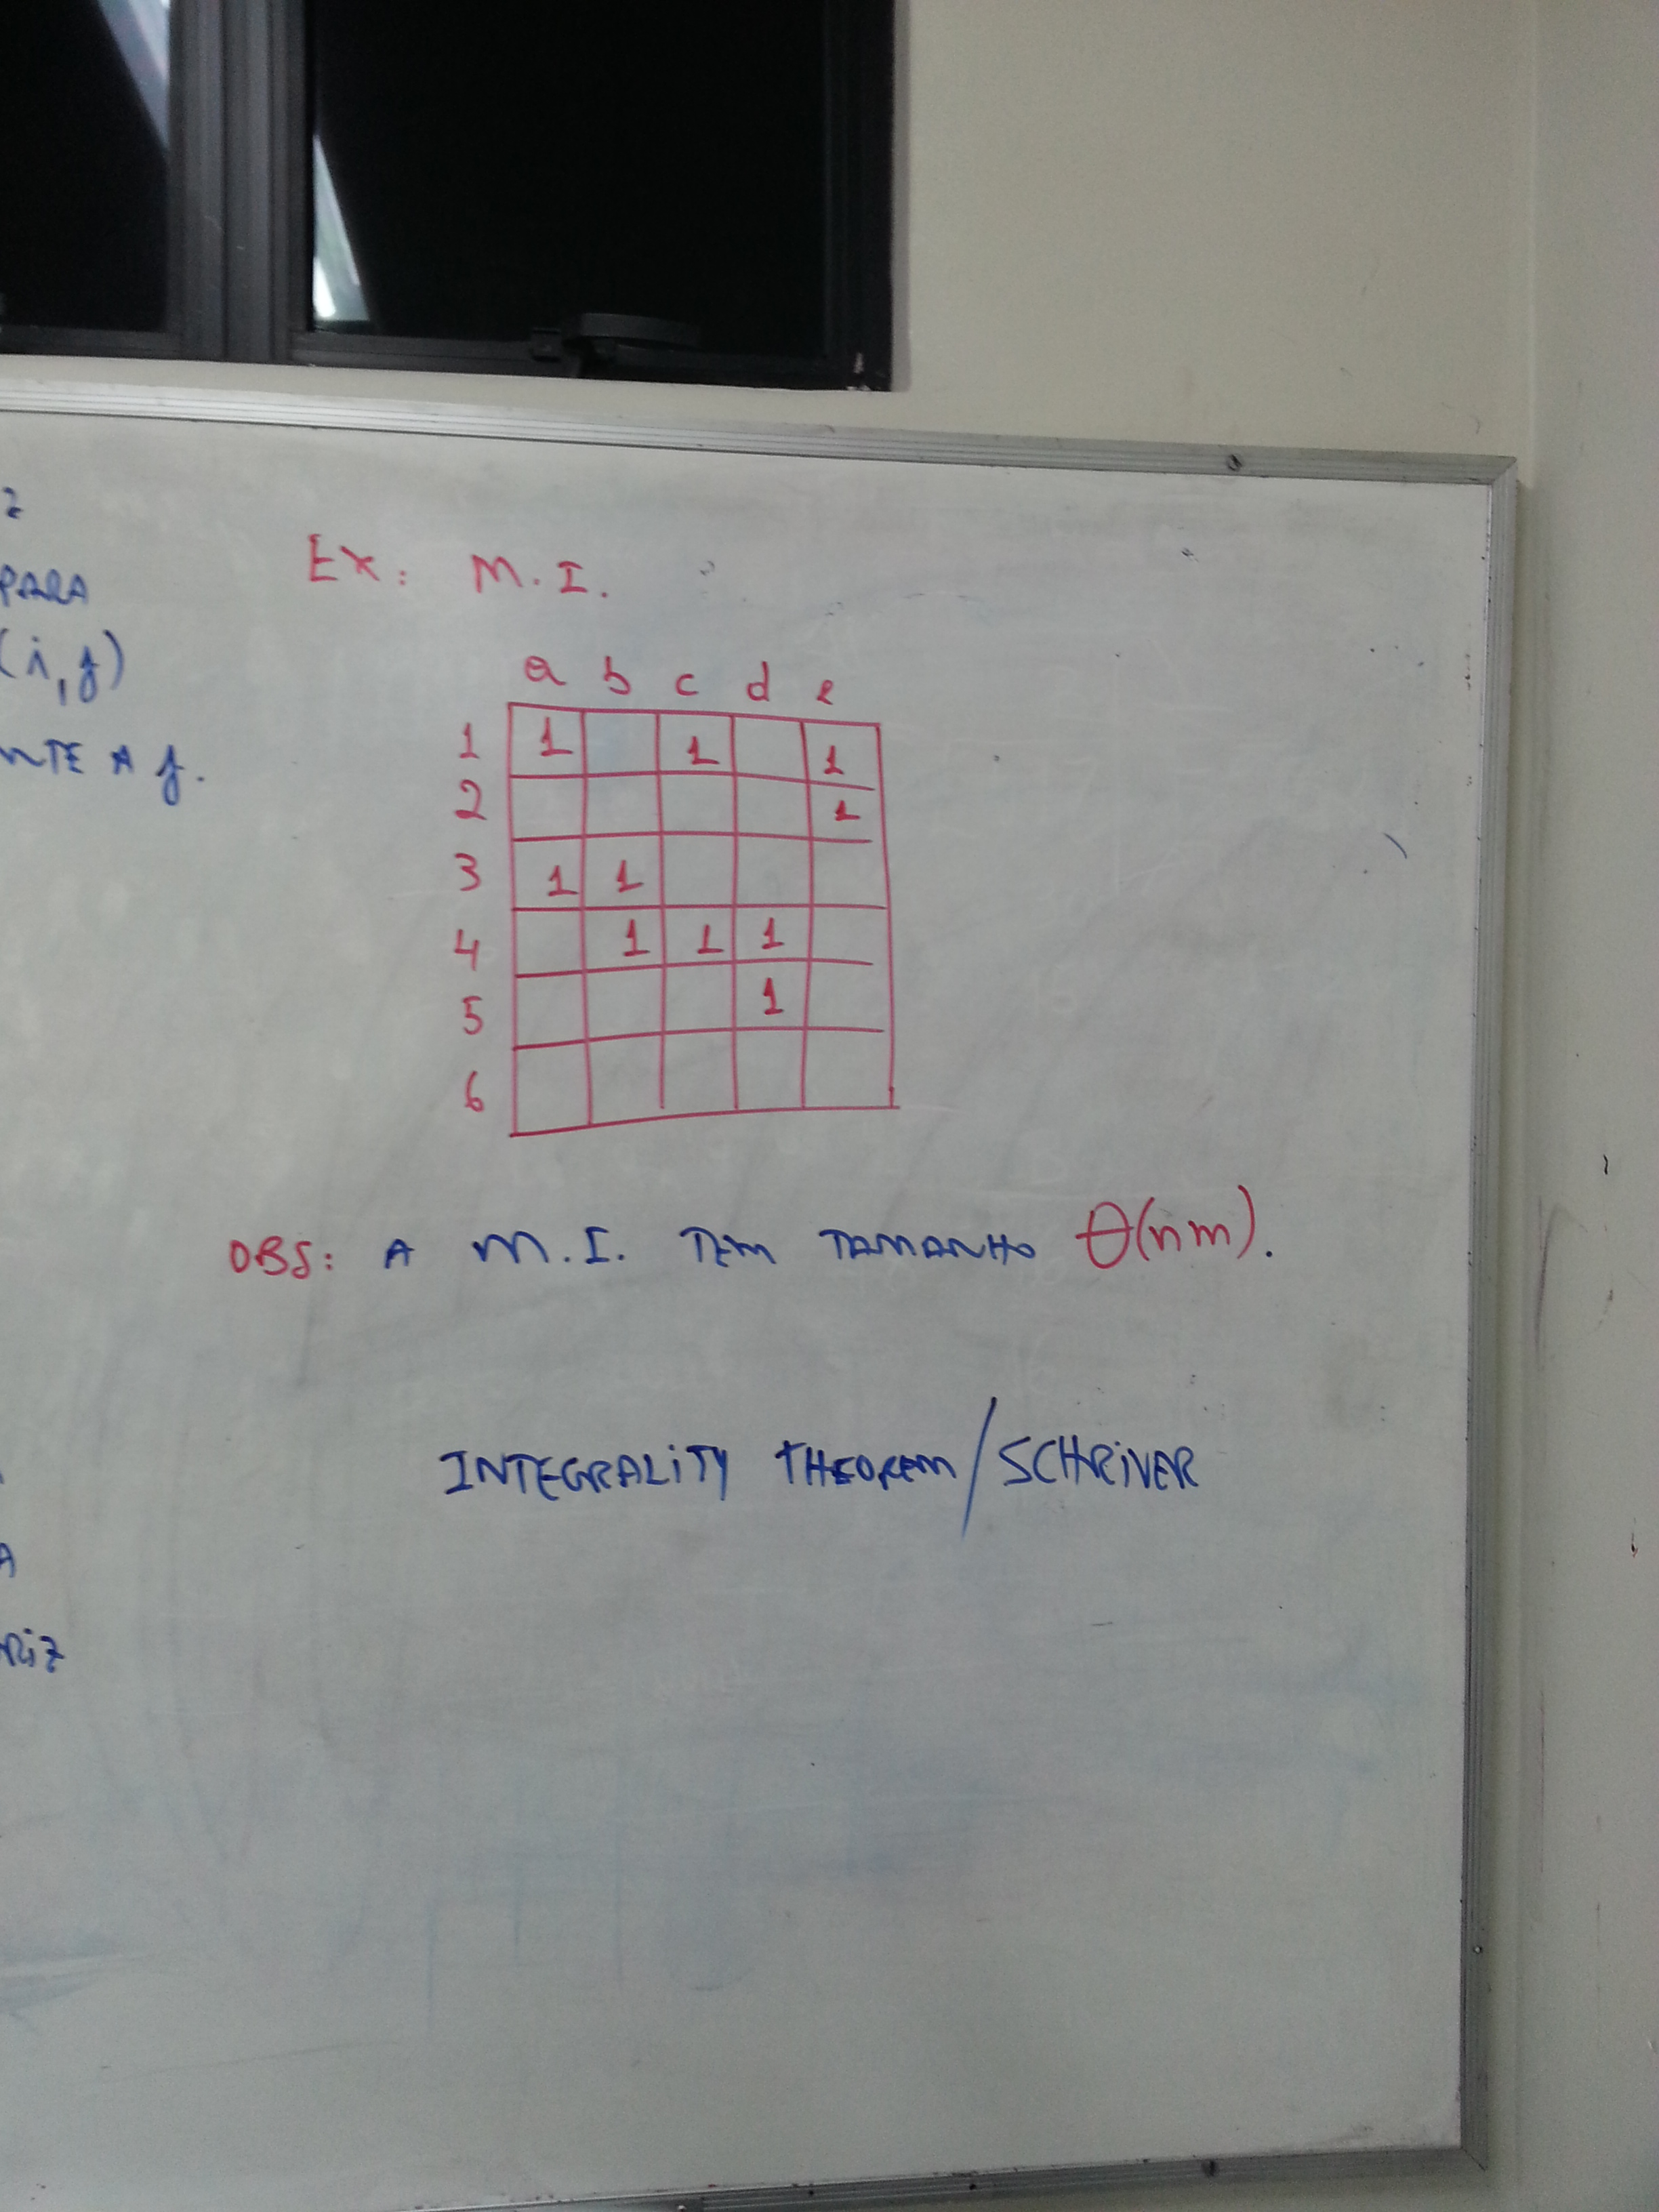 PARA
(i,j)
NTE A j.
Ex: M.I.
a b c d e
1 1 1 1
2 1
3 1 1
4 1 1 1
5 1
6
OBS: A M.I. TEM TAMANHO Θ(nm).
INTEGRALITY THEOREM/SCHRIVER
A
RIZ